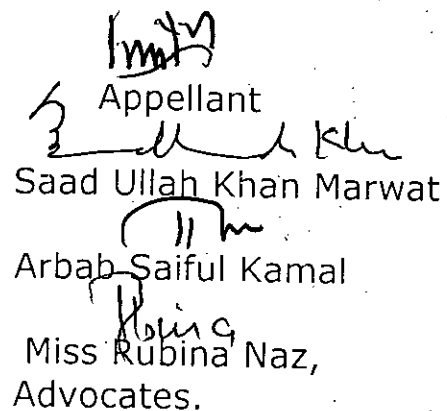 Appellant
Saad Ullah Khan Marwat
Arbab Saiful Kamal
Miss Rubina Naz,
Advocates.